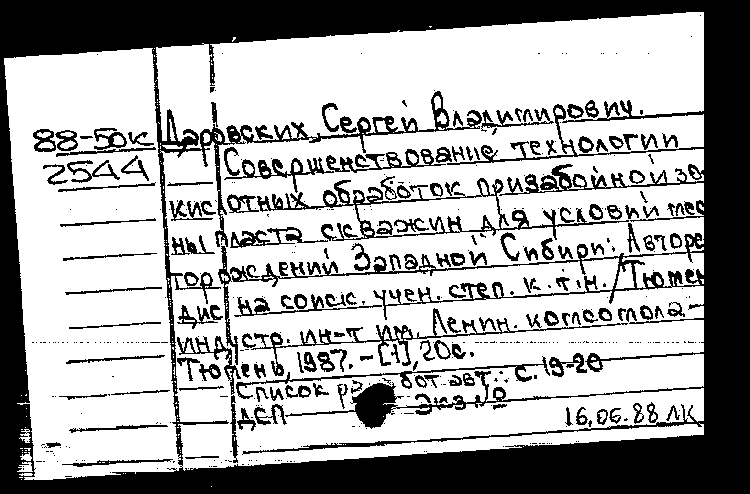 88-50к Даровских, Сергей Владимирович.
2544 Совершенствование технологии
кислотных обработок призабойной зо
ны пласта скважин для условий мес
торождений Западной Сибири: Авторе
дис на соиск. учен. степ. к.т.н. / Тюмен
индустр. ин-т им. Ленин. комсомола -
Тюмень, 1987. - [1], 20 с.
Список работ авт.: с. 19-20
ДСП Экз №
16.06.88 ЛК